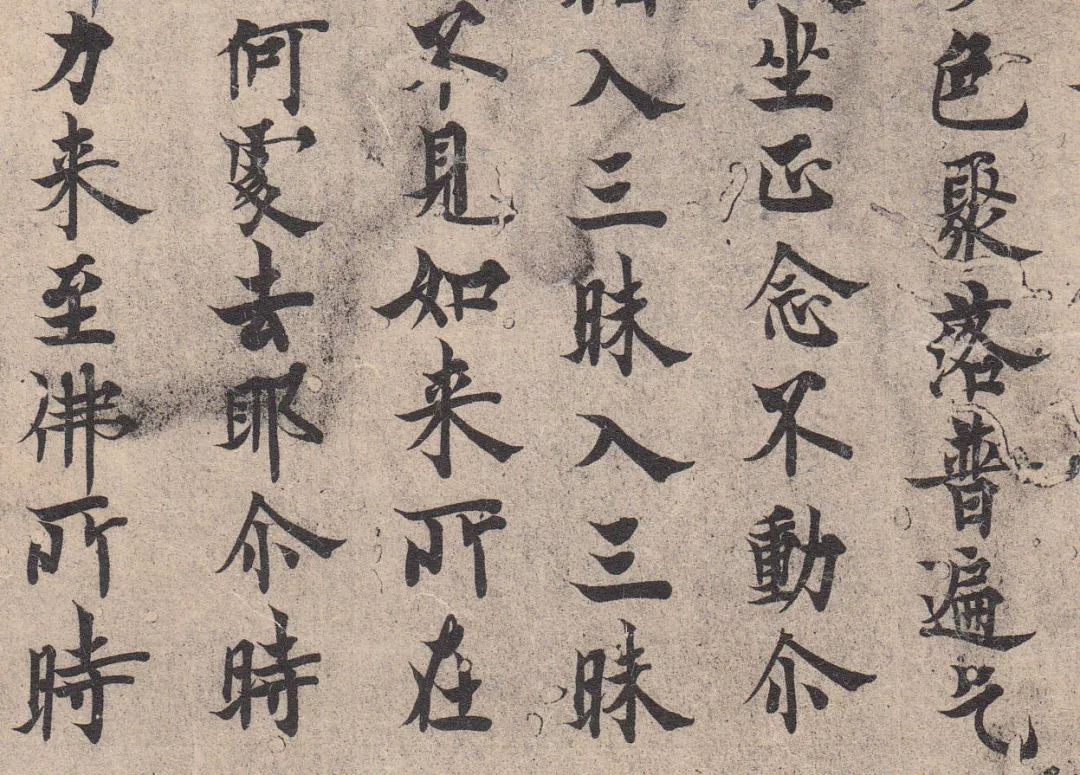 色聚落普遍乞
坐正念不動尒
入三昧入三昧
不見如来所在
何處去耶尒時
力来至佛所時